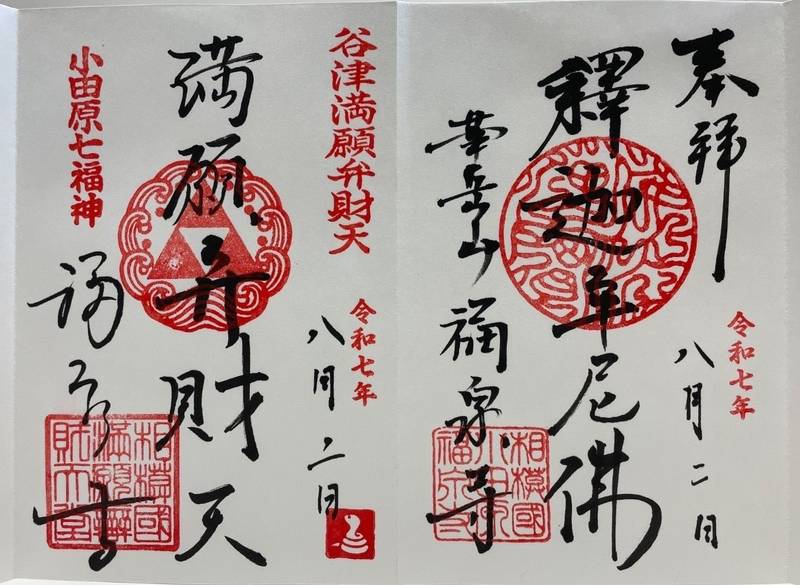 奉拝
令和七年
八月二日
釋迦牟尼佛
華岳山
福泉寺
相模國
小田原
福泉寺
谷津満願弁財天
令和七年
八月二日
満願弁財天
小田原七福神
福泉寺
相模國
財天堂